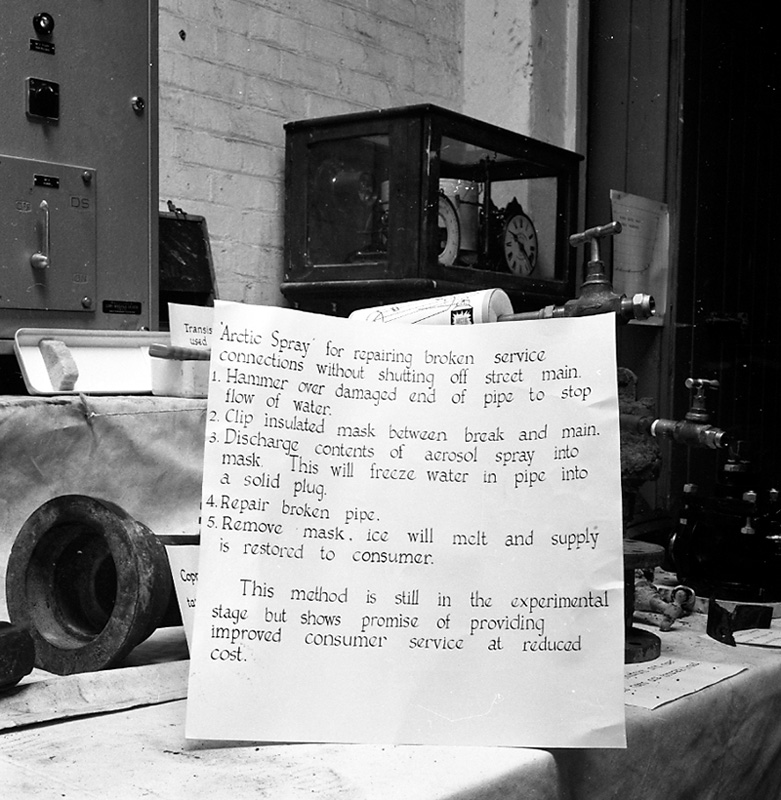 Transis
used
Arctic Spray' for repairing broken service
connections without shutting off street main.
1. Hammer over damaged end of pipe to stop
flow of water.
2. Clip insulated mask between break and main.
3. Discharge contents of aerosol spray into
mask. This will freeze water in pipe into
a solid plug.
4. Repair broken pipe.
5. Remove mask, ice will melt and supply
is restored to consumer.
This method is still in the experimental
stage but shows promise of providing
improved consumer service at reduced
cost.